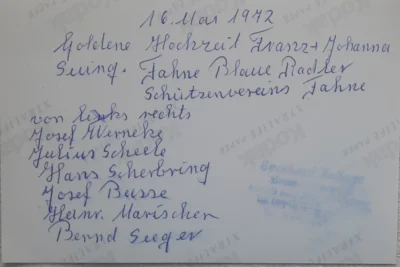 16. Mai 1972
Goldene Hochzeit Franz + Johanna
Suing. Fahne Blaue Radler
Schützenvereins Fahne
von links rechts
Josef Werneke
Julius Scheele
Hans Scherbring
Josef Busse
Heinr. Marischen
Bernd Sueger
Kodak
XTRALIFE PAPER